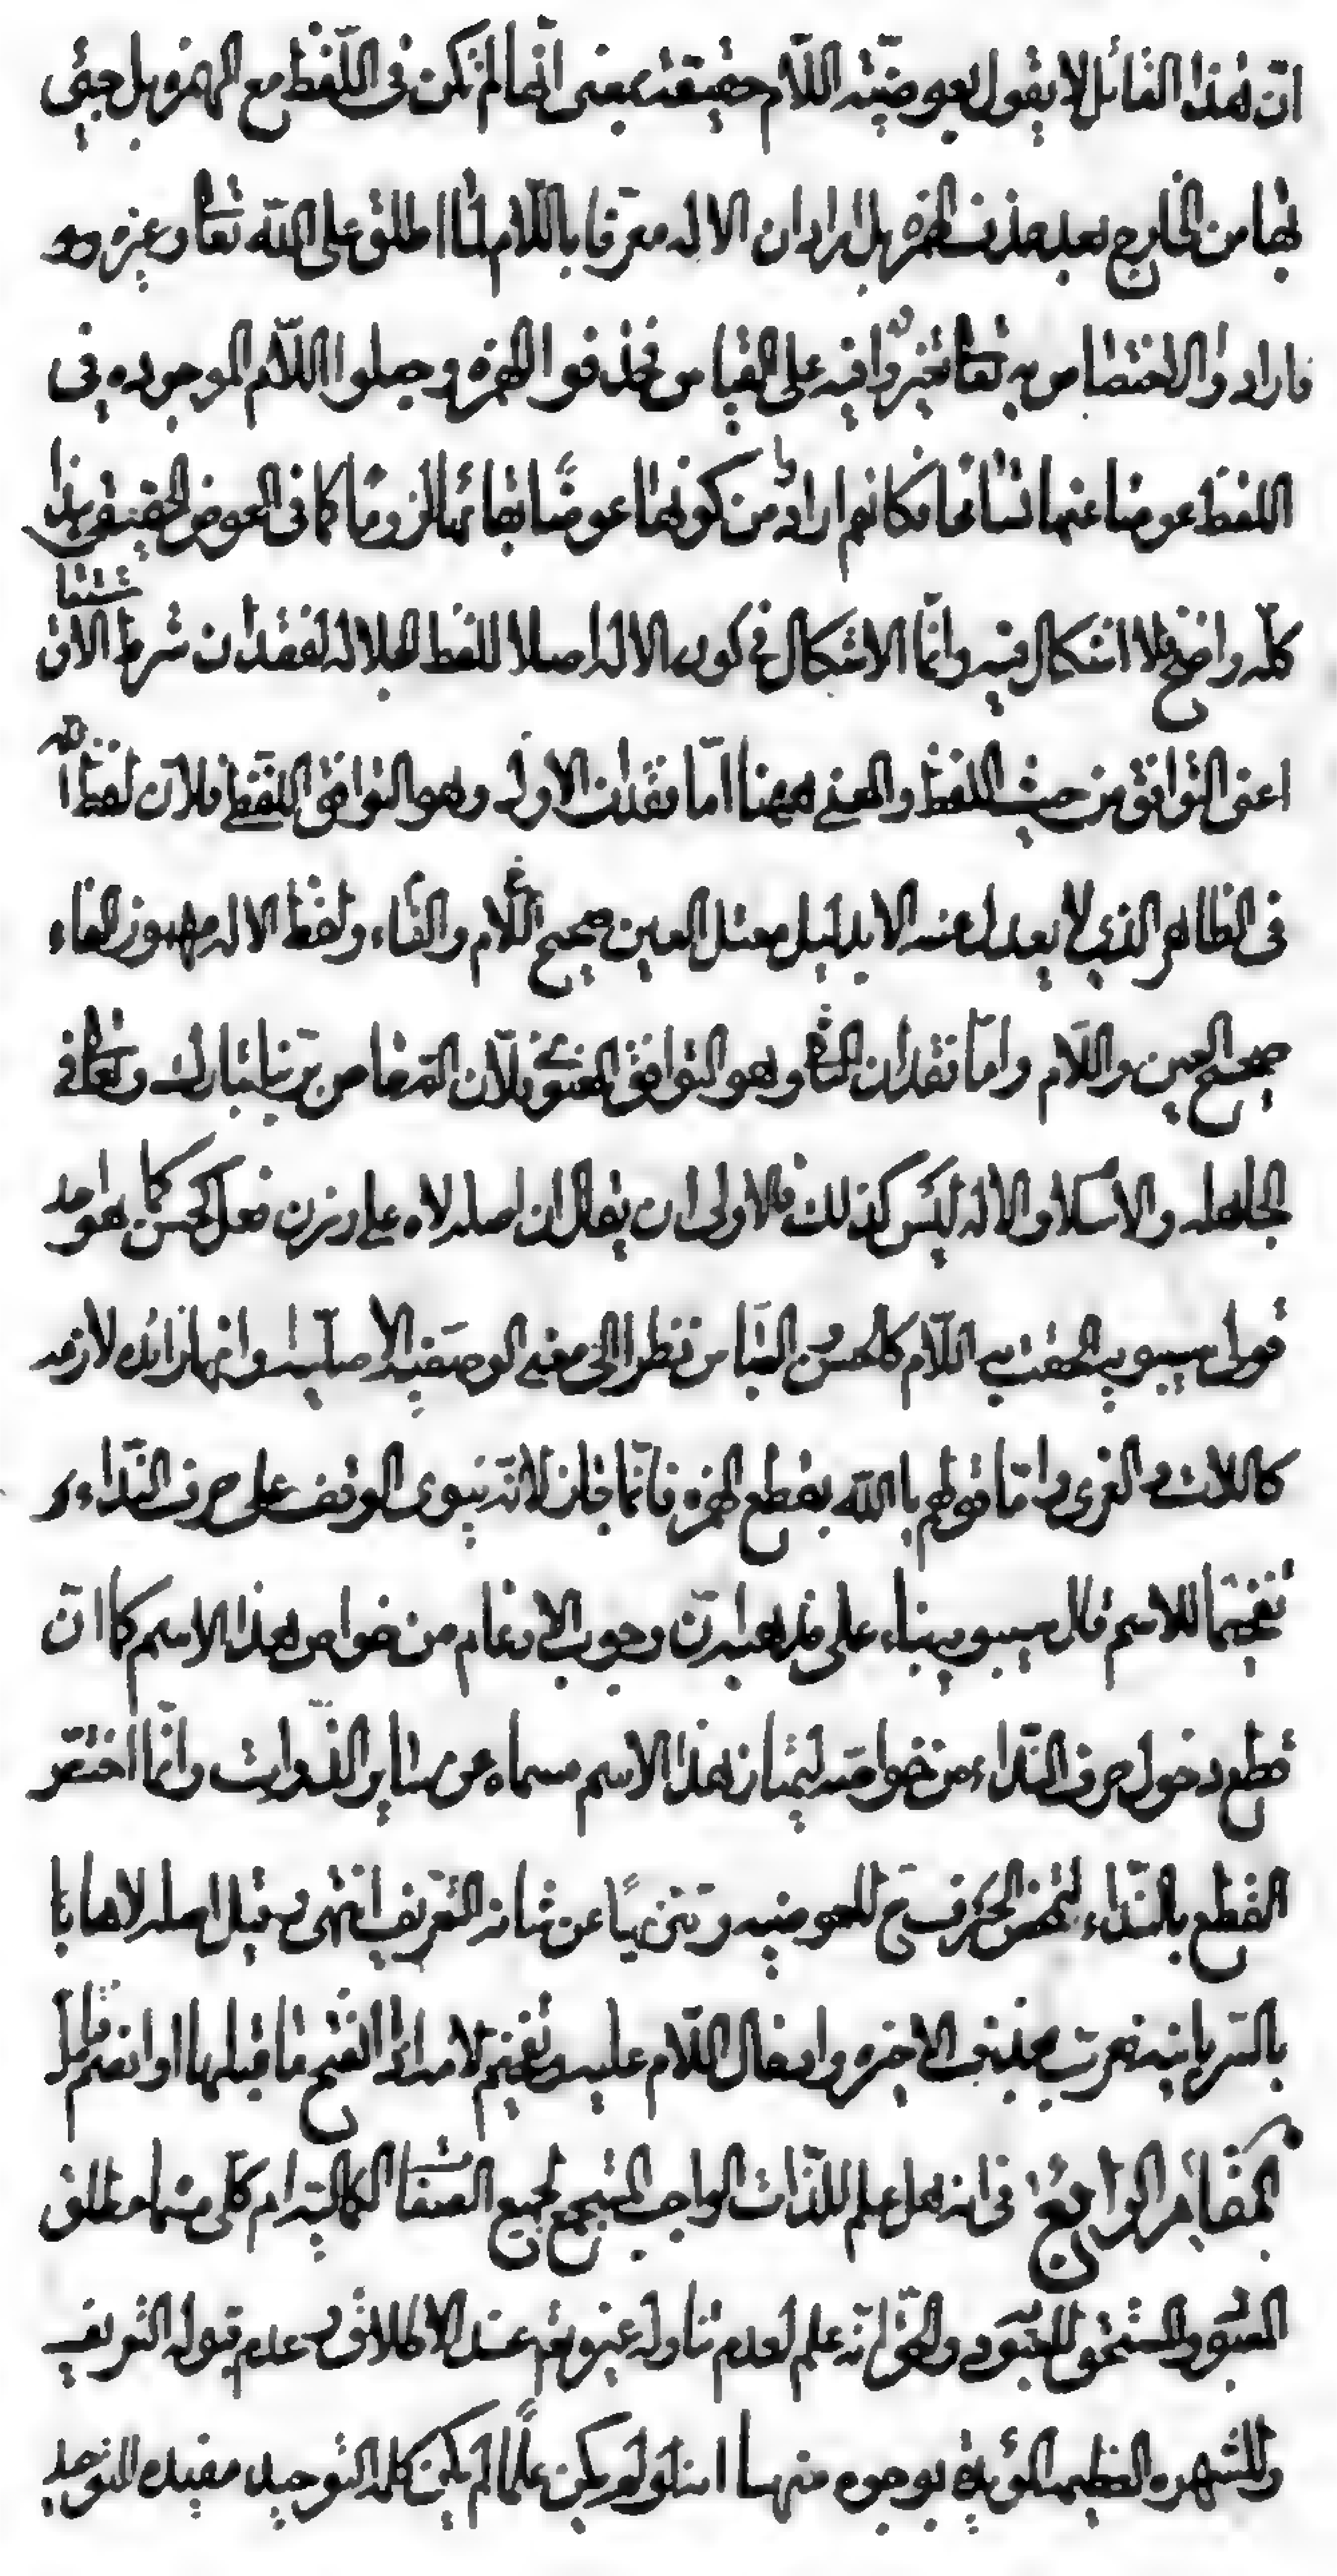 ان هذا القائل لا يقول بعوضية اللام حقيقة بمعنى انها لم تكن فى اللفظ مع الهمزة بل جيئ
بها من الخارج بعد حذف الهمزه بل اراد ان الاله معرفا باللام لما اطلق على الله تعا وغيره
فارادوا الاختصاص به تعا بخير وافيه على القياس فحذفوا الهمزة وجعلوا اللام الموجوده فى
اللفظ عوضا عنها فكانهم ارادوا من كونها عوضا بقائها لازوما كما فى العوض الحقيقى هذا
كله واضح فلا اشكال فيه وانما الاشكال فى كون الاله اصلا للفظ الجلاله لفقدان شرط الاشتقاق
اعنى التوافق من حيث اللفظ والمعنى ههنا اما فقدان الاول وهو التوافق اللفظى فلان لفظ الله
فى الظاهر الذى لا يعدل عنه الا بدليل معتل العين صحيح اللام والفاء ولفظ الاله مهموز الفاء
صحيح العين واللام واما فقدان الثا وهو التوافق المعنوى فلان المختص بربنا تبارك وتعا فى
الجاهله والاسلام والاله ليس كذلك فالاولى ان يقال ان اصله لاه على وزن فعل الحسن كما هو احد
قولى سيبويه الحقت به اللام كالحسن العباس نظرا الى معنى الوصفيه الاصليه وانها زائده لازمه
كاللات و العزى و اما قولهم يا الله بقطع الهمزه فانما جاز لانه ينوى الوقف على حرف النداء و
تفخيما للاسم قال سيبويه بناء على مذهبه ان وجوب الادغام من خواص هذا الاسم كما ان
قطع دخول حرف النداء من خواصه ليمتاز هذا الاسم مسماه عن ساير الذوات وانما اختص
القطع بالنداء لتمحض الحرف ح للعوضيه و تنزيها عن شانه التعريف انتهى و قيل اصله لاها يا
بالسريانيه فعرب بحذف الاخره وادخال اللام عليه و تفخيم لامه اذا انفتح ما قبلها او انضم قيل
المقام الرابع فى انه هل علم للذات الواجب المستجمع لجميع الصفا الكماليه ام كلى منهما مطلق
المعبود والمستحق للعبوديه والحق انه علم لعدم تناوله غير بعد عند الاطلاق و عدم قبوله التعريف
وللشهره العظيمه المؤيده بوجوه منها انه لو لم يكن علما لم يكن كلمه التوحيد مفيده للتوحيد